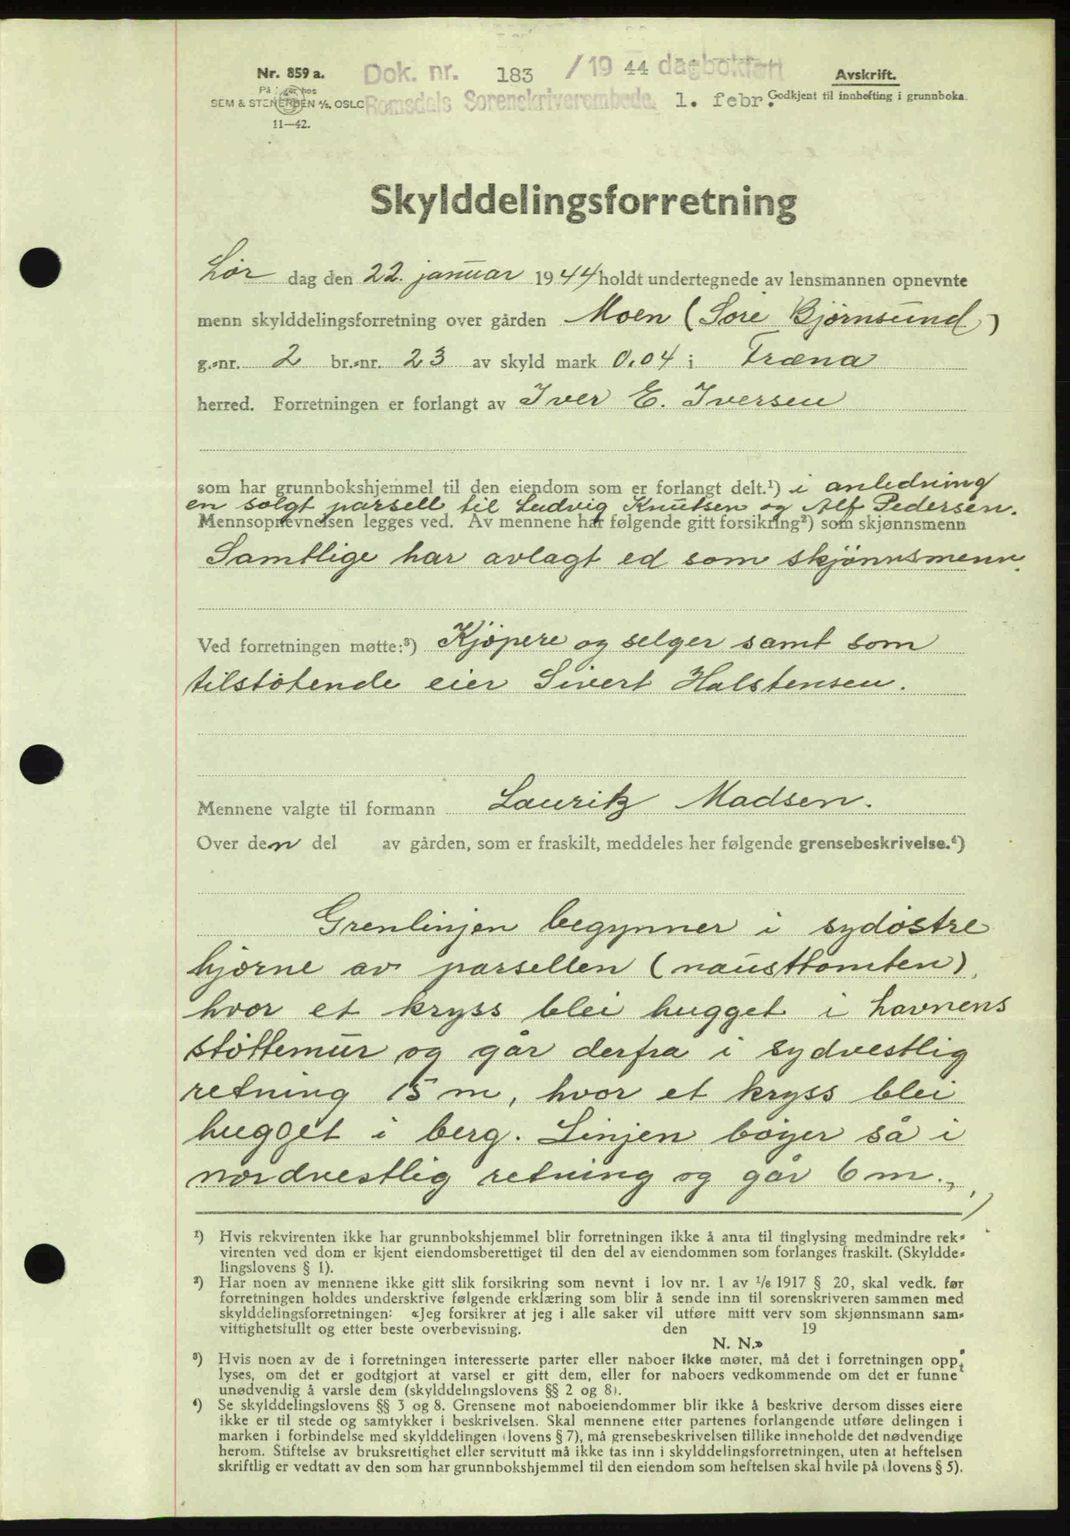 Nr. 859 a.
SEM & STENERSEN A/S, OSLO
11—42.
Dok. nr. 183 /19 44 dagbokført
Romsdals Sorenskriverembede. 1. febr.
Avskrift.
Godkjent til innhefting i grunnboka.
Skylddelingsforretning
Lør dag den 22. januar 1944 holdt undertegnede av lensmannen opnevnte
menn skylddelingsforretning over gården Moen (Søre Bjørnsund)
g.-nr. 2 br.-nr. 23 av skyld mark 0.04 i Fræna
herred. Forretningen er forlangt av Iver E. Iversen
som har grunnbokshjemmel til den eiendom som er forlangt delt.¹) i anledning
en solgt parsell til Ludvig Knutsen og Alf Pedersen.
Mennsopnevnelsen legges ved. Av mennene har følgende gitt forsikring²) som skjønnsmenn
Samtlige har avlagt ed som skjønnsmenn.
Ved forretningen møtte:³) Kjøpere og selger samt som
tilstøtende eier Sivert Halstensen.
Mennene valgte til formann Lauritz Madsen.
Over den del av gården, som er fraskilt, meddeles her følgende grensebeskrivelse.⁴)
Grenlinjen begynner i sydøstre
hjørne av parsellen (nausttomten),
hvor et kryss blei hugget i havnens
støttemur og går derfra i sydvestlig
retning 15 m, hvor et kryss blei
hugget i berg. Linjen bøyer så i
nordvestlig retning og går 6 m.,
¹) Hvis rekvirenten ikke har grunnbokshjemmel blir forretningen ikke å anta til tinglysing medmindre rek-
virenten ved dom er kjent eiendomsberettiget til den del av eiendommen som forlanges fraskilt. (Skyldde-
lingslovens § 1).
²) Har noen av mennene ikke gitt slik forsikring som nevnt i lov nr. 1 av 1/6 1917 § 20, skal vedk. før
forretningen holdes underskrive følgende erklæring som blir å sende inn til sorenskriveren sammen med
skylddelingsforretningen: «Jeg forsikrer at jeg i alle saker vil utføre mitt verv som skjønnsmann sam-
vittighetsfullt og etter beste overbevisning. den 19
N. N.»
³) Hvis noen av de i forretningen interesserte parter eller naboer ikke møter, må det i forretningen opp-
lyses, om det er godtgjort at varsel er gitt dem, eller for naboers vedkommende om det er funnet
unødvendig å varsle dem (skylddelingslovens §§ 2 og 8).
⁴) Se skylddelingslovens §§ 3 og 8. Grensene mot naboeiendommer blir ikke å beskrive dersom disses eiere
ikke er til stede og samtykker i beskrivelsen. Skal mennene etter partenes forlangende utføre delingen i
marken i forbindelse med skylddelingen (lovens § 7), må grensebeskrivelsen tillike inneholde det nødvendige
herom. Stiftelse av bruksrettighet eller servitutt må ikke tas inn i skylddelingsforretningen, uten at heftelsen
skriftlig er vedtatt av den som har grunnbokshjemmel til den eiendom som heftelsen skal hvile på (lovens § 5).